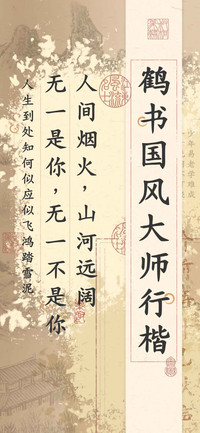 鹤书国风大师行楷
人间烟火，山河远阔
无一是你，无一不是你
人生到处知何似应似飞鸿踏雪泥
少年易老学难成